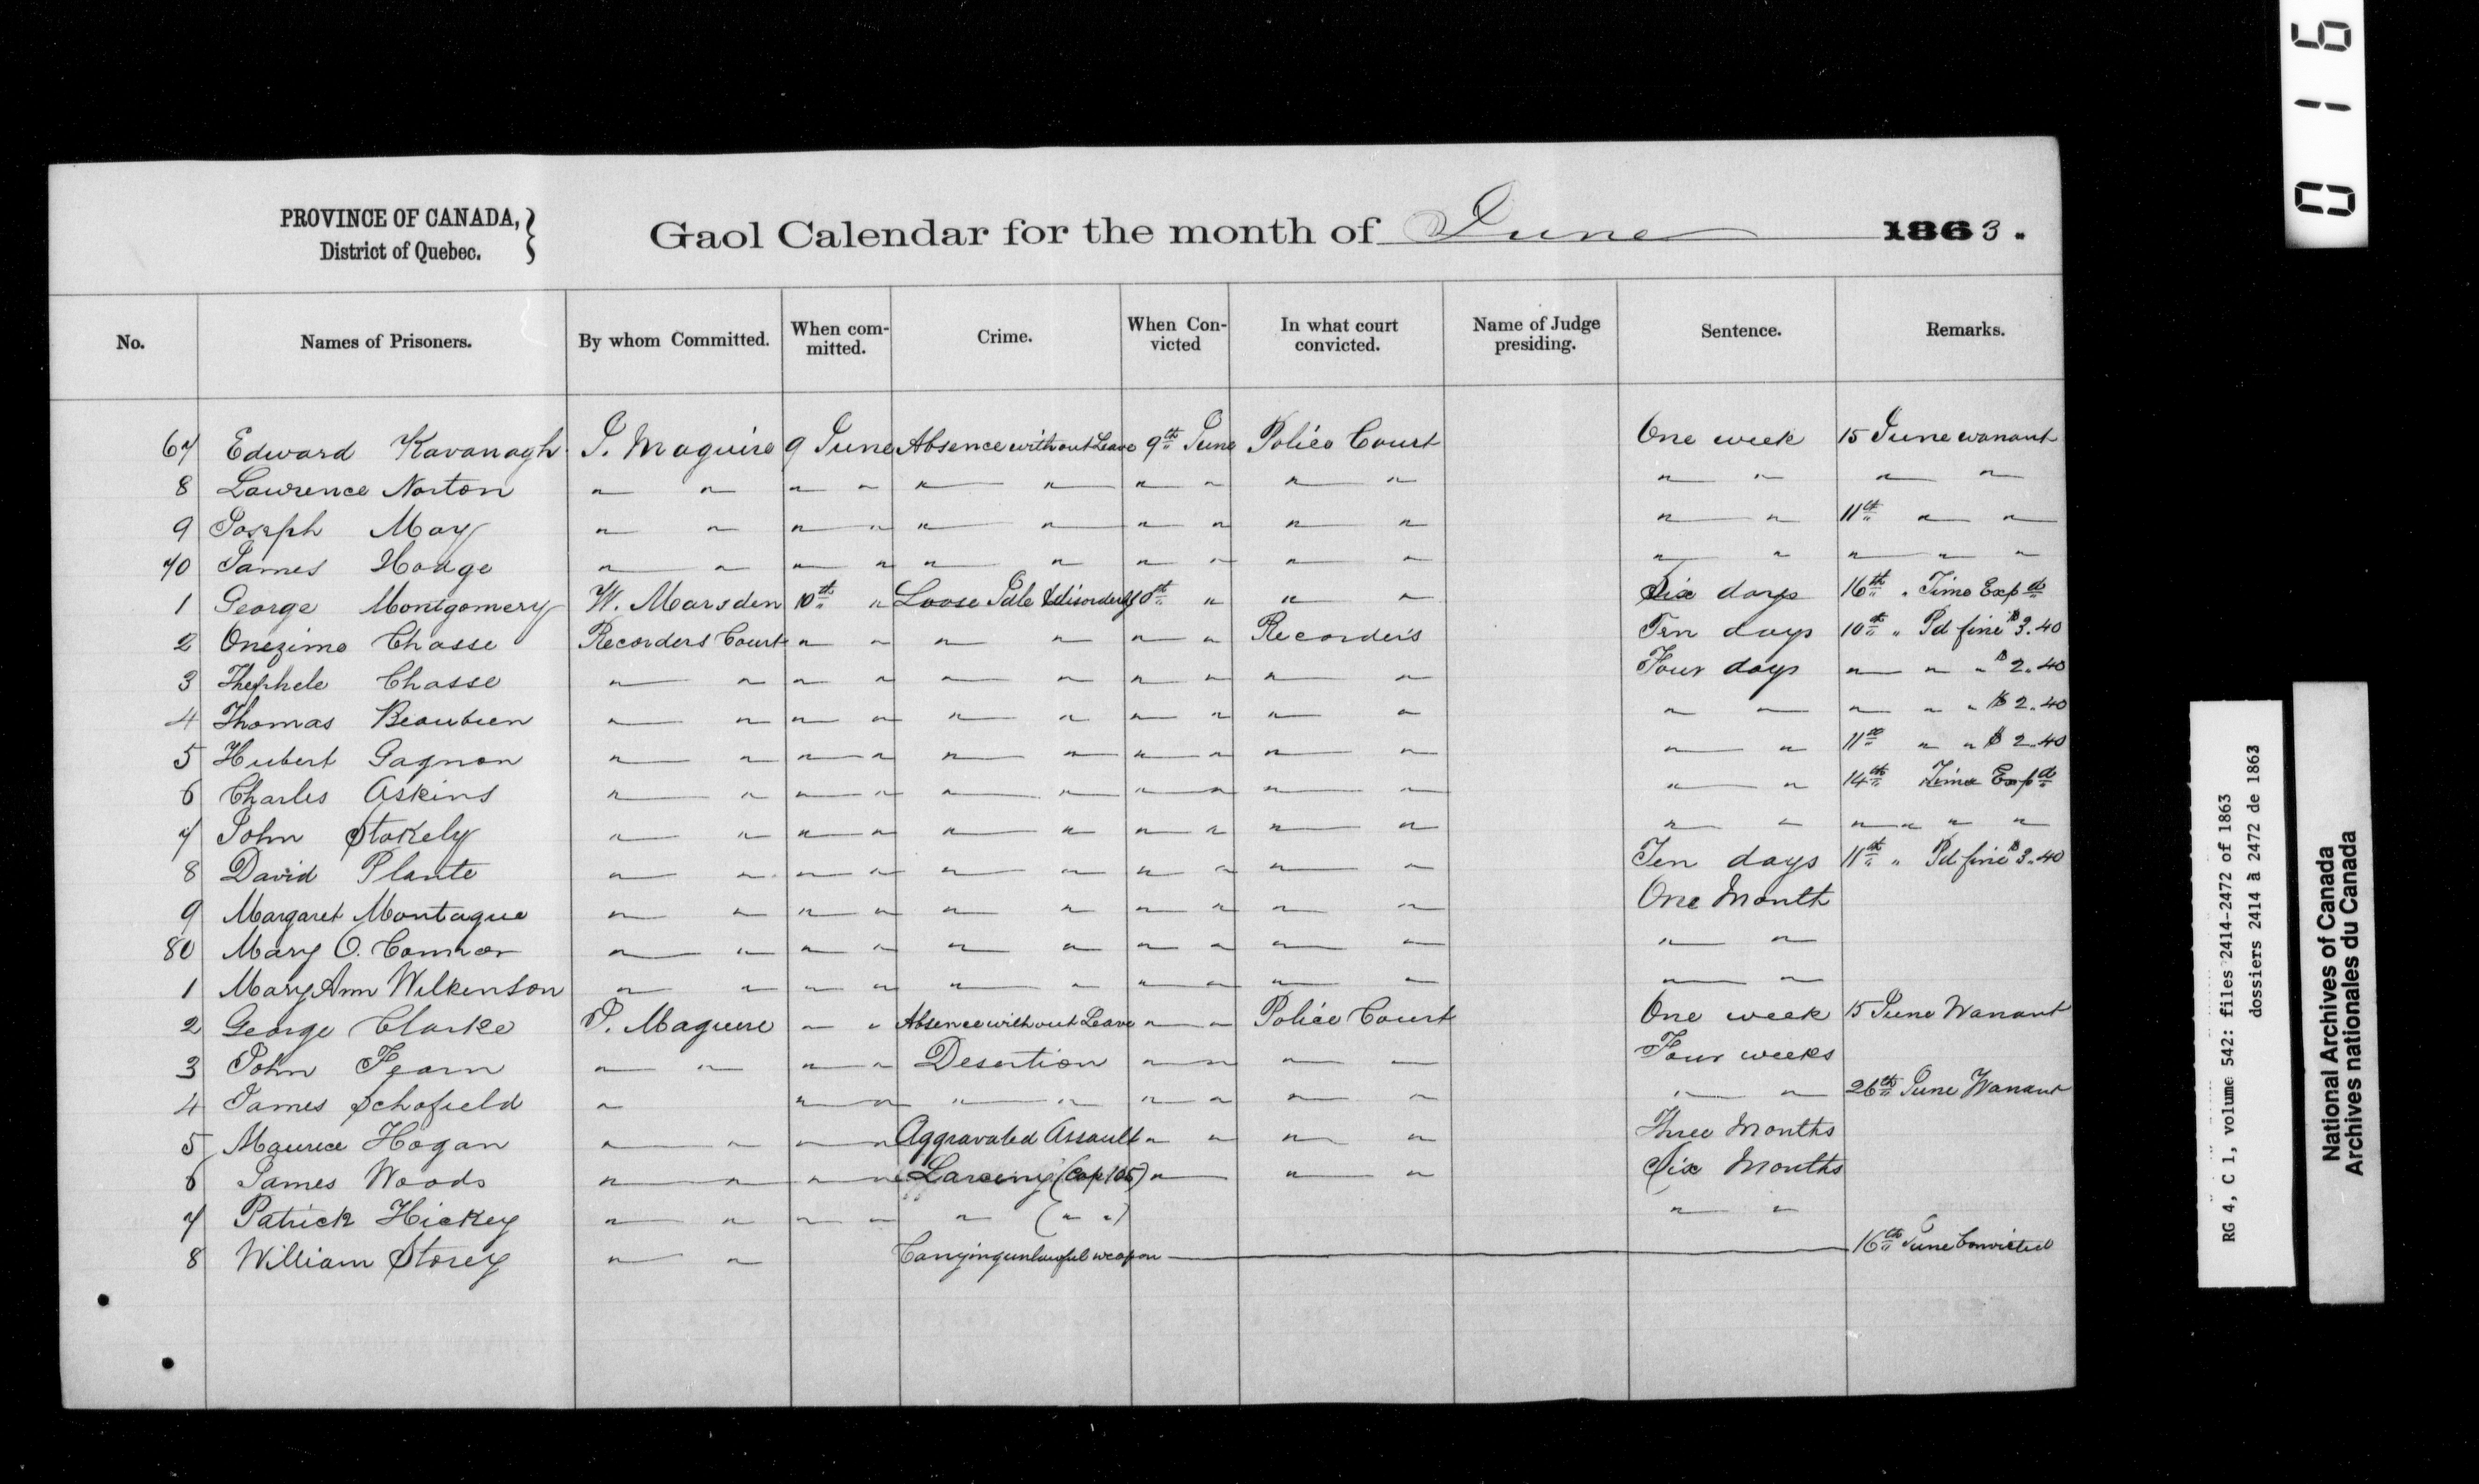 PROVINCE OF CANADA,
District of Quebec.
Gaol Calendar for the month of June 1863.
No. Names of Prisoners. By whom Committed. When com-mitted. Crime. When Con-victed In what court convicted. Name of Judge presiding. Sentence. Remarks.
67 Edward Kavanagh J. Maguire 9 June Absence without Leave 9th June Police Court One week 15 June warrant
8 Lawrence Norton " " " " " " " " " " " " " "
9 Joseph May " " " " " " " " " " " " 11th " "
70 James Hodge " " " " " " " " " " " " " " "
1 George Montgomery W. Marsden 10th " Loose Idle & disorderly 10th " " " Six days 16th " Time Expd
2 Onezime Chasse Recorders Court " " " " " " Recorder's Ten days 10th " Pd fine $3.40
3 Thephele Chasse " " " " " " " " " " Four days " " " $2.40
4 Thomas Beaubien " " " " " " " " " " " " " " " $2.40
5 Hubert Gagnon " " " " " " " " " " " " 11th " " $2.40
6 Charles Askins " " " " " " " " " " " " 14th Time Expd
7 John Stokely " " " " " " " " " " " " " " " "
8 David Plante " " " " " " " " " " Ten days 11th " Pd fine $3.40
9 Margaret Montague " " " " " " " " " " One Month
80 Mary O. Connor " " " " " " " " " " " "
1 Mary Ann Wilkenson " " " " " " " " " " " "
2 George Clarke J. Maguire " " Absence without Leave " " Police Court One week 15 June Warrant
3 John Fearn " " " " Desertion " " " " Four weeks
4 James Schofield " " " " " " " " " " " 26th June Warrant
5 Maurice Hogan " " " " Aggravated Assault " " " " Three Months
6 James Woods " " " " Larceny (Cap 105) " " " Six Months
7 Patrick Hickey " " " " " (" ") " "
8 William Storey " " Carrying unlawful weapon 16th June Convicted
0 1 6
RG 4, C 1, volume 542: files 2414-2472 of 1863
dossiers 2414 à 2472 de 1863
National Archives of Canada
Archives nationales du Canada